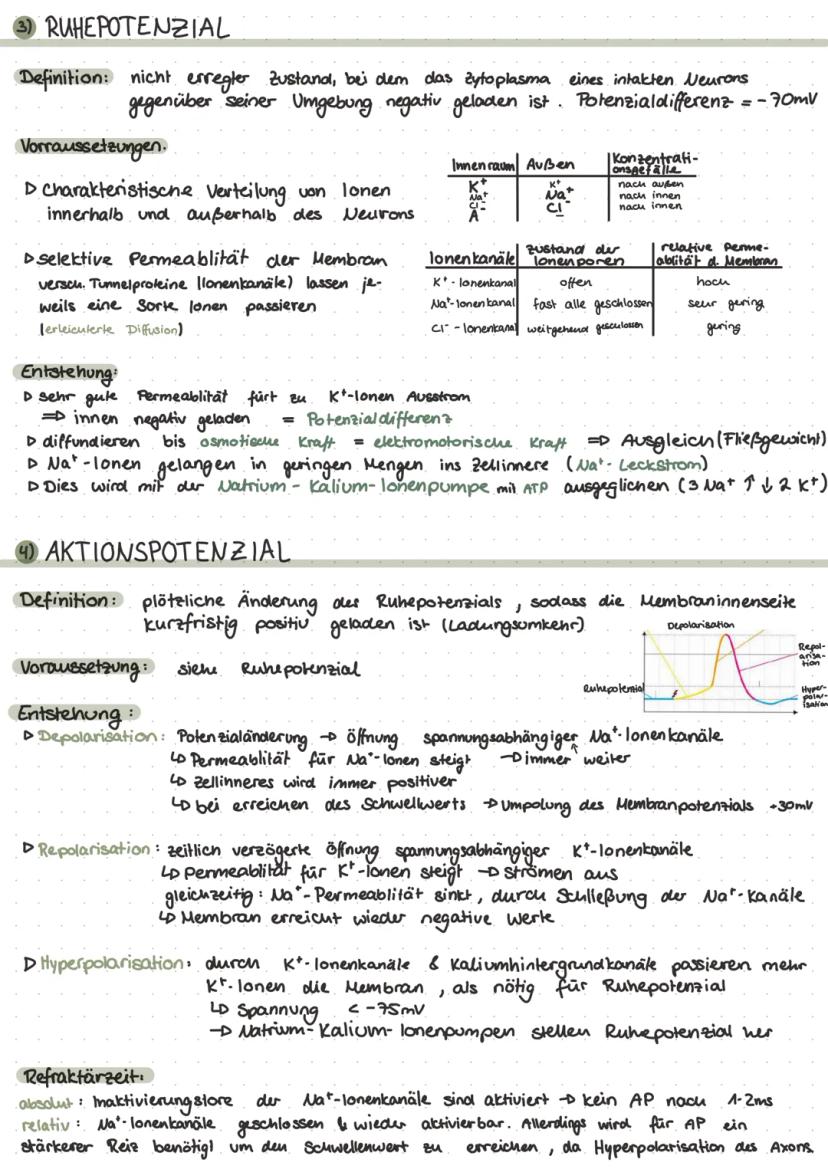 3) RUHEPOTENZIAL
Definition: nicht erregter Zustand, bei dem das Zytoplasma eines intakten Neurons
gegenüber seiner Umgebung negativ geladen ist. Potenzialdifferenz = -70mV
Vorraussetzungen.
▷ Charakteristische Verteilung von Ionen
innerhalb und außerhalb des Neurons
Innenraum | Außen | Konzentrati-
onsgefälle
K⁺ | K⁺ | nach außen
Na⁺ | Na⁺ | nach innen
Cl⁻ | Cl⁻ | nach innen
A⁻
▷ selektive Permeablität der Membran
versch. Tunnelproteine (Ionenkanäle) lassen je-
weils eine Sorte Ionen passieren
(erleichterte Diffusion)
Ionenkanäle | Zustand der Ionenporen | relative Perme-
ablität d. Membran
K⁺-Ionenkanal | offen | hoch
Na⁺-Ionenkanal | fast alle geschlossen | sehr gering
Cl⁻-Ionenkanal | weitgehend geschlossen | gering
Entstehung:
▷ sehr gute Permeablität fürt zu K⁺-Ionen Ausstrom
⇒ innen negativ geladen = Potenzialdifferenz
▷ diffundieren bis osmotische Kraft = elektromotorische Kraft ⇒ Ausgleich (Fließgewicht)
▷ Na⁺-Ionen gelangen in geringen Mengen ins Zellinnere (Na⁺-Leckstrom)
▷ Dies wird mit der Natrium-Kalium-Ionenpumpe mit ATP ausgeglichen (3 Na⁺ ↑ ↓ 2 K⁺)
4) AKTIONSPOTENZIAL
Definition: plötzliche Änderung des Ruhepotenzials, sodass die Membraninnenseite
kurzfristig positiv geladen ist (Ladungsumkehr)
Depolarisation
Repol-
arisa-
tion
Ruhepotenzial
Hyper-
polar-
isation
Voraussetzung: siehe Ruhepotenzial
Entstehung:
▷ Depolarisation: Potenzialänderung → Öffnung spannungsabhängiger Na⁺-Ionenkanäle
↳ Permeablität für Na⁺-Ionen steigt → immer weiter
↳ Zellinneres wird immer positiver
↳ bei erreichen des Schwellwerts → Umpolung des Membranpotenzials +30mV
▷ Repolarisation: zeitlich verzögerte Öffnung spannungsabhängiger K⁺-Ionenkanäle
↳ Permeablität für K⁺-Ionen steigt → strömen aus
gleichzeitig: Na⁺-Permeablität sinkt, durch Schließung der Na⁺-Kanäle
↳ Membran erreicht wieder negative Werte
▷ Hyperpolarisation: durch K⁺-Ionenkanäle & Kaliumhintergrundkanäle passieren mehr
K⁺-Ionen die Membran, als nötig für Ruhepotenzial
↳ Spannung < -75mV
→ Natrium-Kalium-Ionenpumpen stellen Ruhepotenzial her
Refraktärzeit:
absolut: Inaktivierungstore der Na⁺-Ionenkanäle sind aktiviert → kein AP nach 1-2ms
relativ: Na⁺-Ionenkanäle geschlossen & wieder aktivierbar. Allerdings wird für AP ein
stärkerer Reiz benötigt um den Schwellenwert zu erreichen, da Hyperpolarisation des Axons.